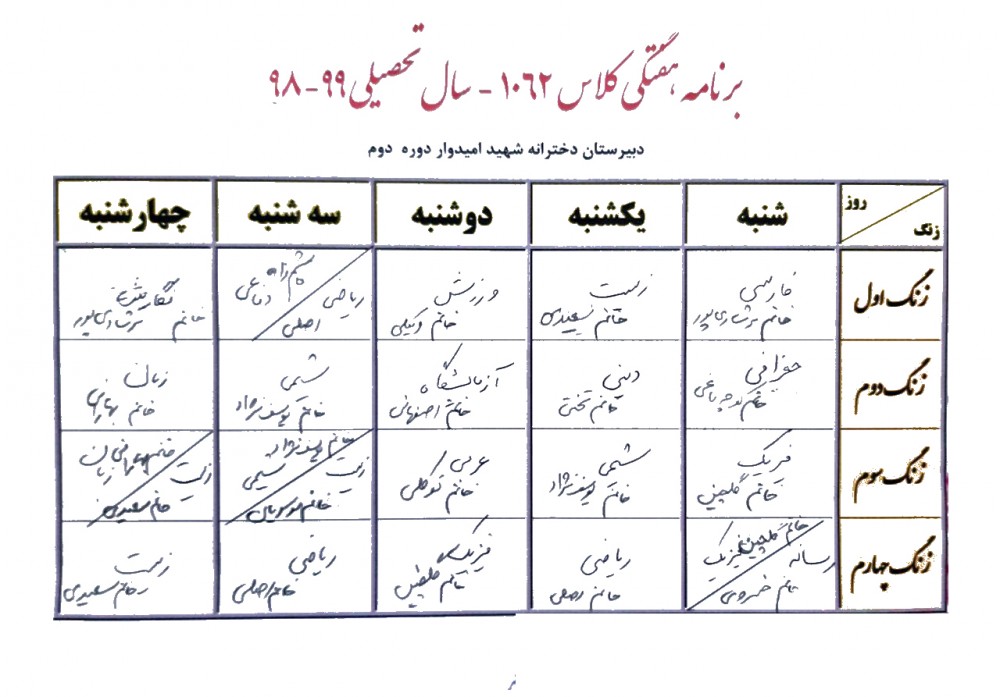 برنامه هفتگی کلاس ۱۰۶۲ - سال تحصیلی ۹۹-۹۸
دبیرستان دخترانه شهید امیدوار دوره دوم
روز
زنگ
شنبه
یکشنبه
دوشنبه
سه شنبه
چهارشنبه
زنگ اول
فارسی
خانم سرشاری پور
زیست
خانم سعیدی
ورزش
خانم وکیلی
دفاعی
ریاضی
اصلی
نگارش
خانم سرشاری پور
زنگ دوم
جغرافی
خانم
دینی
خانم تختی
آزمایشگاه
خانم اصفهانی
شیمی
خانم یوسف نژاد
زبان
خانم بهرامی
زنگ سوم
فیزیک
خانم گلچین
شیمی
خانم یوسف نژاد
عربی
خانم توکلی
خانم یوسف نژاد
شیمی
زیست
خانم موسویان
خانم زبان
زیست
خانم سعیدی
زنگ چهارم
خانم گلچین فیزیک
رسانه
خانم خسروی
ریاضی
خانم اصلی
فیزیک
خانم گلچین
ریاضی
خانم اصلی
زیست
خانم سعیدی